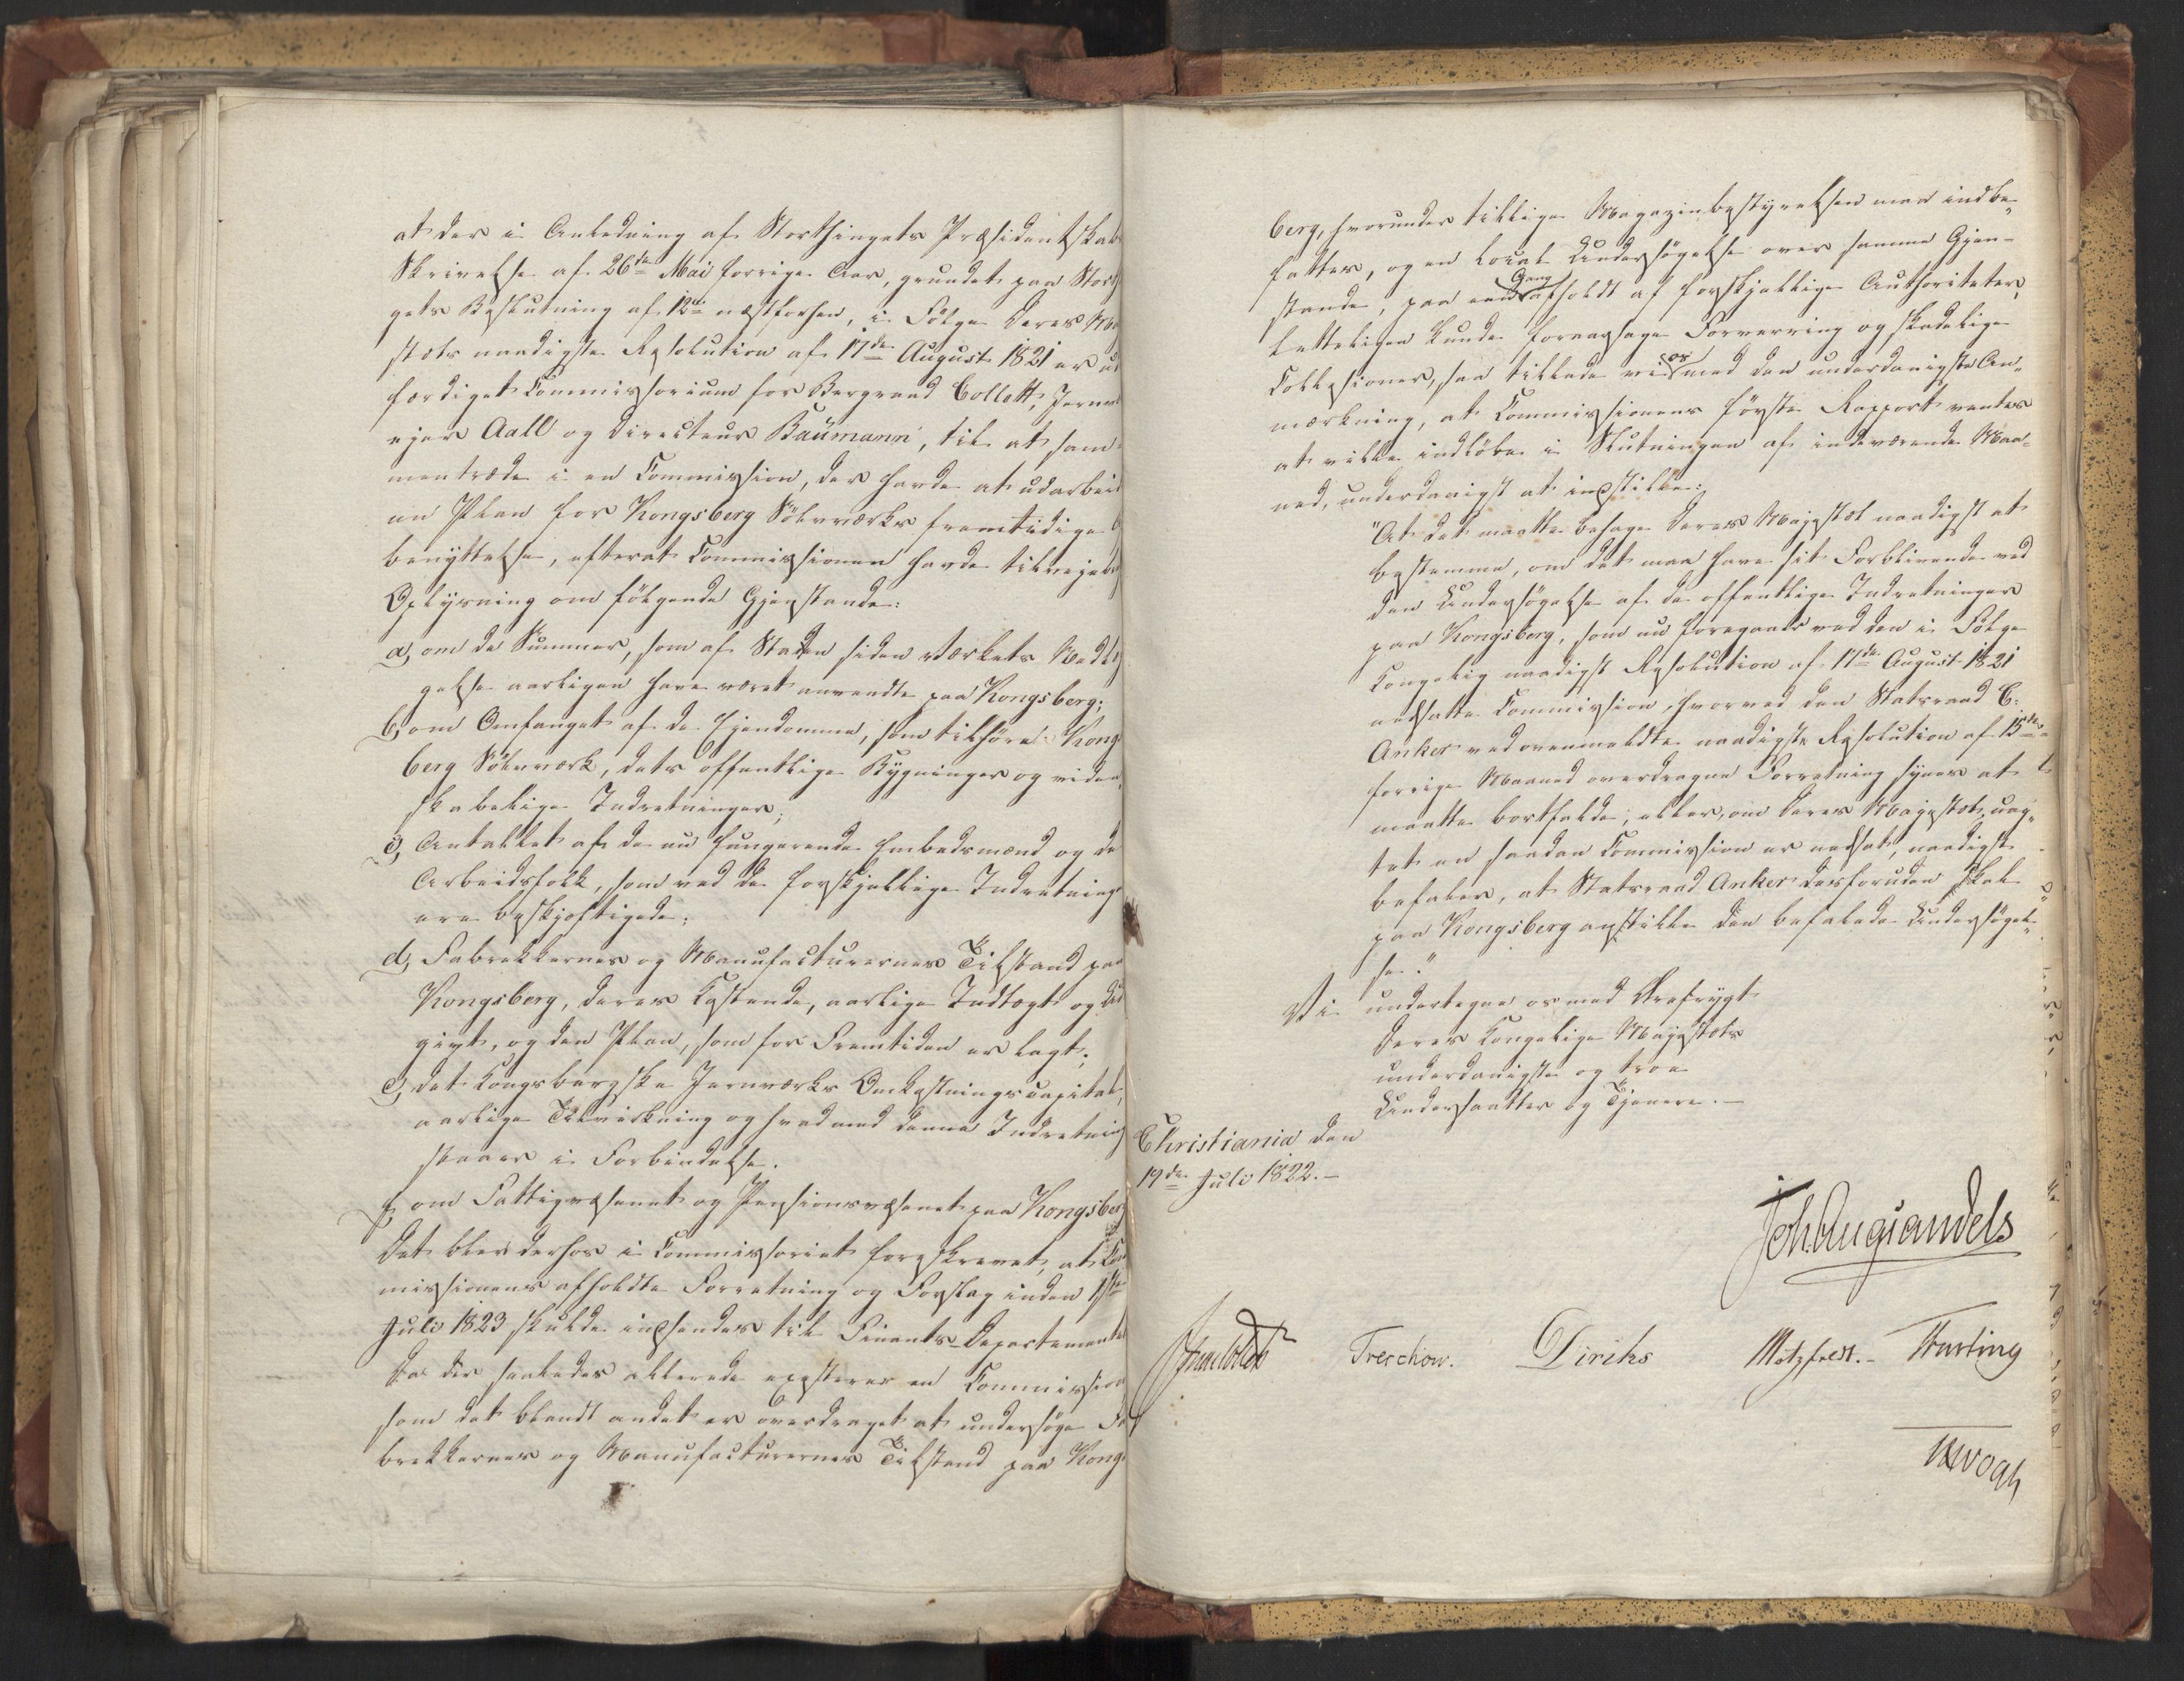 at der i Anledning af Storthingets Præsidentskabs
Skrivelse af 26de Mai forrige Aar, grundet paa Stor¬
gets Beslutning af 12te næstforhen, i Følge Deres Ma
stæts naadigste Resolution af 17de August 1821 er ud
færdiget Commissorium for Bergraad Collett, Jernv
ejer Aall og Directeur Baumann, til at sam¬
mentræde i en Commission, der havde at udarbeid
en Plan for Kongsberg Sølvværks fremtidige
benyttelse, efterat Commissionen havde tilvejeb
Oplysning om følgende Gjenstande:
a, om de Summer, som af Staten siden Værkets Nedl
gelse aarligen have været anvendte paa Kongsberg;
b, om Omfanget af de Ejendomme, som tilhøre Kong
berg Sølvværk, dets offentlige Bygninger og viden
skabelige Indretninger;
c, Antallet af de nu fungerende Embedsmænd og de
Arbeidsfolk, som ved de forskjellige Indretning
ere beskjeftigede;
d, Fabrikkernes og Manufacturernes Tilstand paa
Kongsberg, deres Bestaaende, aarlige Indtægt og Ud
givt, og den Plan, som for Fremtiden er lagt;
e, det Kongsbergske Jernværks Omkostningscapital,
aarlige Tilvirkning og hvad med denne Indretning
staaer i Forbindelse.
f, om Fattigvæsenet og Pensionsvæsenet paa Kongsberg
Det blev derhos i Commissoriet foreskrevet, at Com
missionens afholdte Forretning og Forslag inden 1ste
Juli 1823 skulde indsendes til Finants-Departementet
Da der saaledes allerede existerer en Commission
som det blandt andet er overdraget at undersøge Fa
brikkernes og Manufacturernes Tilstand paa Kongs
berg, hvorunder tillige Magazinbestyrelsen maa indbe¬
fattes, og en local Undersøgelse over samme Gjen¬
stande, paa een Gang afholdt af forskjellige Authoriteter,
letteligen kunde foraarsage Forvirring og skadelige
Collisioner, saa tillade vi os med den underdanigste An¬
mærkning, at Commissionens første Rapport ventes
at ville indløbe i Slutningen af indeværende Maa¬
ned, underdanigst at indstille:
"At det maatte behage Deres Majestæt naadigst at
bestemme, om det maa have sit Forblivende ved
den Undersøgelse af de offentlige Indretninger
paa Kongsberg, som nu foregaaer ved den i Følge
Kongelig naadigst Resolution af 17de August 1821
nedsatte Commission, hvorved den Statsraad C:
Anker ved ovenmeldte naadigste Resolution af 15de
forrige Maaned overdragne Forretning synes at
maatte bortfalde; eller, om Deres Majestæt, uag¬
tet en saadan Commission er nedsat, naadigst
befaler, at Statsraad Anker desforuden skal
paa Kongsberg anstille den befalede Undersøgel¬
se."
Vi undertegne os med Ærefrygt
Deres Kongelige Majestæts
underdanigste og troe
Undersaatter og Tjenere.–
Christiania den
19de Juli 1822.–
Joh. Aug Sandels
Treschow. Diriks Motzfeldt.– Fasting
Vogt